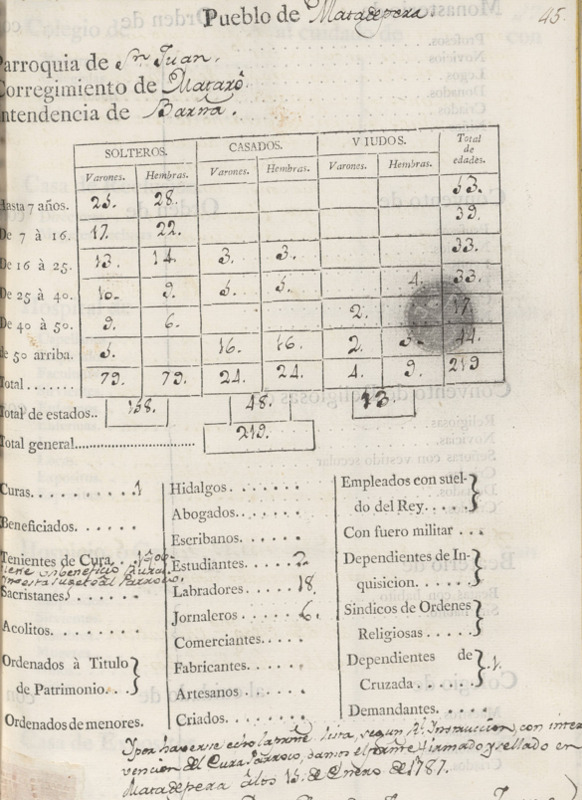 45.
Pueblo de Matadepera.
Parroquia de Sn. Juan.
Corregimiento de Mataró
Intendencia de Barna.
SOLTEROS. CASADOS. VIUDOS. Total de edades.
Varones. Hembras. Varones. Hembras. Varones. Hembras.
Hasta 7 años. 25. 28. 53.
De 7 à 16. 17. 22. 39.
De 16 à 25. 13. 14. 3. 3. 33.
De 25 à 40. 10. 9. 5. 5. 4. 33.
De 40 à 50. 9. 6. 2. 17.
de 50 arriba. 5. 16. 16. 2. 5. 44.
Total....... 79. 79. 24. 24. 4. 9. 219
Total de estados.. 158. 48. 13.
Total general.......... 219.
Curas...... 1
Beneficiados......
Tenientes de Cura..
Sacristanes......
Acolitos.......
Ordenados à Titulo
de Patrimonio...
Ordenados de menores.
Hidalgos.......
Abogados......
Escribanos.....
Estudiantes.... 2
Labradores.... 18
Jornaleros.... 6.
Comerciantes....
Fabricantes.....
Artesanos.....
Criados.......
Empleados con suel-
do del Rey....
Con fuero militar ...
Dependientes de In-
quisicion......
Sindicos de Ordenes
Religiosas.....
Dependientes de
Cruzada.... 1.
Demandantes....
Y por haverse echo la lista, segun Rl. Instruccion, con inter
vencion del Cura Parroco, damos el firmado y sellado en
Matadepera â los 15. de Enero de 1787.